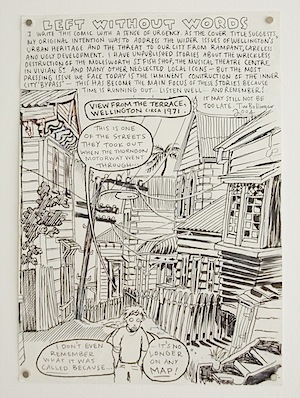 LEFT WITHOUT WORDS
I WRITE THIS COMIC WITH A SENSE OF URGENCY. AS THE COVER TITLE SUGGESTS,
MY ORIGINAL INTENTION WAS TO ADDRESS THE WIDER ISSUES OF WELLINGTON'S
URBAN HERITAGE AND THE THREAT TO OUR CITY FROM RAMPANT, CARELESS
AND UGLY DEVELOPMENT. I HAVE UNPUBLISHED STORIES ABOUT THE WRECKLESS
DESTRUCTION OF THE MOLESWORTH ST FISH SHOP, THE MUSICAL THEATRE CENTRE
IN VIVIAN ST AND MANY OTHER NEGLECTED LOCAL ICONS — BUT THE MOST
PRESSING ISSUE WE FACE TODAY IS THE IMMINENT CONSTRUCTION OF THE INNER
CITY "BYPASS" — THIS HAS BECOME THE MAIN FOCUS OF THESE STORIES BECAUSE
TIME IS RUNNING OUT. LISTEN WELL — AND REMEMBER!
IT MAY STILL NOT BE
TOO LATE. Tim Bollinger
VIEW FROM THE TERRACE,
WELLINGTON CIRCA 1971.
THIS IS ONE
OF THE STREETS
THEY TOOK OUT
WHEN THE THORNDON
MOTORWAY WENT
THROUGH...
I DON'T EVEN
REMEMBER
WHAT IT WAS
CALLED BECAUSE...
IT'S NO
LONGER
ON ANY
MAP!